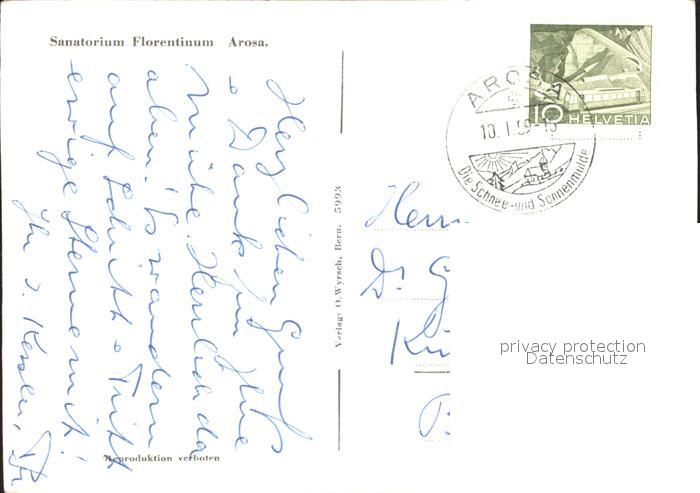 Sanatorium Florentinum Arosa.
Herzlichen Gruss
& Dank für Ihre
Mühe. Herrlich da
oben! Es wandern
auf Schritt & Tritt
ewige Sterne mit!
Ihr J. Kessler,
Verlag: O. Wyrsch, Bern. 5993
Reproduktion verboten
AROSA
10. I. 59-15
Die Schnee- und Sonnenmulde
10 HELVETIA
Herrn
Dr. G
privacy protection
Datenschutz